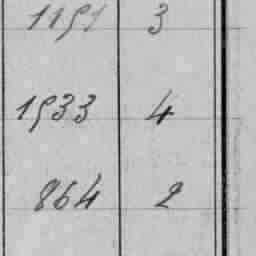 1151 3
1533 4
864 2